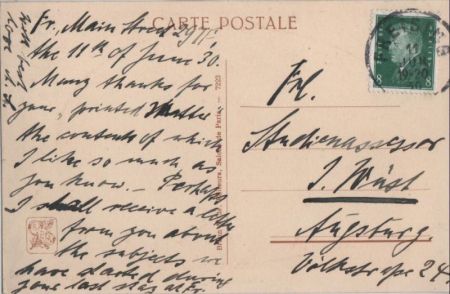 CARTE POSTALE
Fr., Main Street 29 II
the 11th of June 30.
Many thanks for
your printed Matter
the contents of which
I like so much as
you know. — Perhaps
I shall receive a letter
from you about
the subjects we
have started during
your last stay at Fr.
With
Frl.
Studienassessor
J. Wüst
Augsburg
Volkstraße 24
Salon de Paris. — 7223
11
JUN
8
8